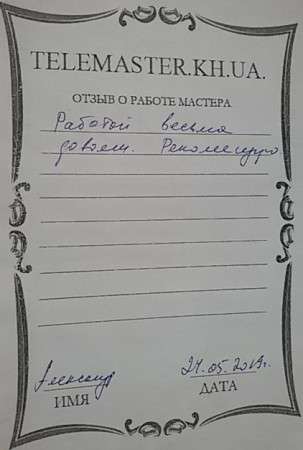 TELEMASTER.KH.UA.
ОТЗЫВ О РАБОТЕ МАСТЕРА
Работой весьма
доволен. Рекомендую
Александр 24.05.2019г.
ИМЯ ДАТА